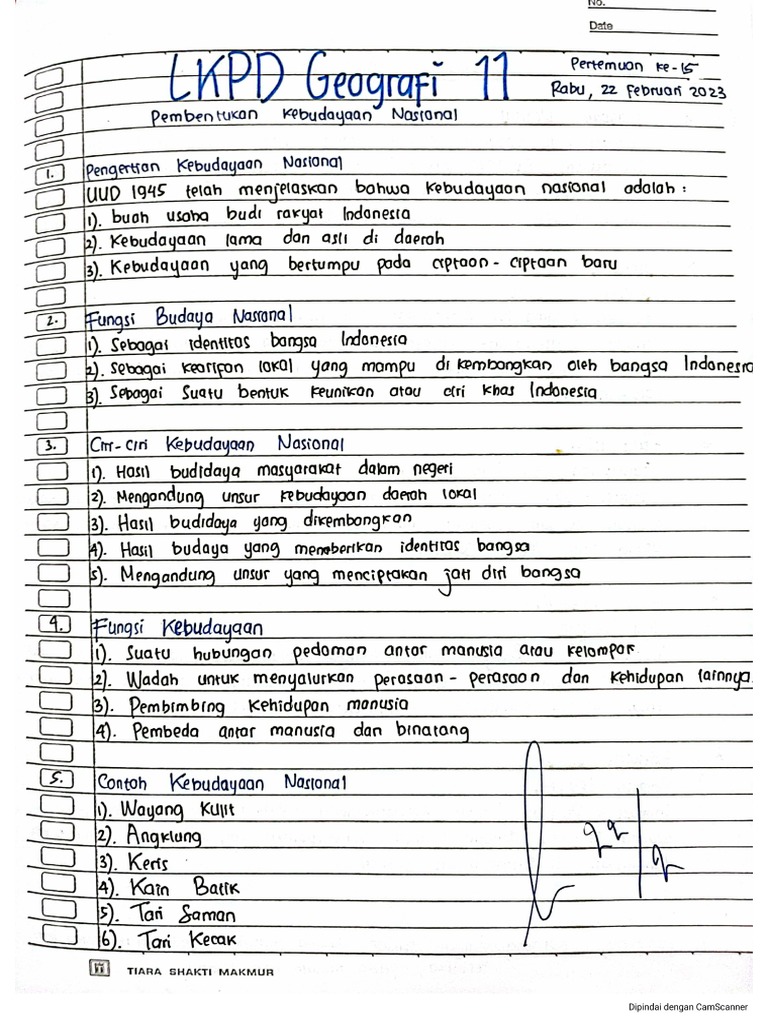 No.
Date
LKPD Geografi 11
Pertemuan ke-15
Rabu, 22 Februari 2023
Pembentukan Kebudayaan Nasional
1. Pengertian Kebudayaan Nasional
UUD 1945 telah menjelaskan bahwa kebudayaan nasional adalah :
1). buah usaha budi rakyat Indonesia
2). Kebudayaan lama dan asli di daerah
3). Kebudayaan yang bertumpu pada ciptaan - ciptaan baru
2. Fungsi Budaya Nasional
1). Sebagai identitas bangsa Indonesia
2). Sebagai kearifan lokal yang mampu di kembangkan oleh bangsa Indonesia
3). Sebagai Suatu bentuk keunikan atau ciri khas Indonesia
3. Ciri-ciri Kebudayaan Nasional
1). Hasil budidaya masyarakat dalam negeri
2). Mengandung unsur kebudayaan daerah lokal
3). Hasil budidaya yang dikembangkan
4). Hasil budaya yang memberikan identitas bangsa
5). Mengandung unsur yang menciptakan jati diri bangsa
4. Fungsi Kebudayaan
1). Suatu hubungan pedoman antar manusia atau kelompok
2). Wadah untuk menyalurkan perasaan - perasaan dan kehidupan lainnya
3). Pembimbing kehidupan manusia
4). Pembeda antar manusia dan binatang
5. Contoh Kebudayaan Nasional
1). Wayang Kulit
2). Angklung
3). Keris
4). Kain Batik
5). Tari Saman
6). Tari Kecak
TIARA SHAKTI MAKMUR
Dipindai dengan CamScanner